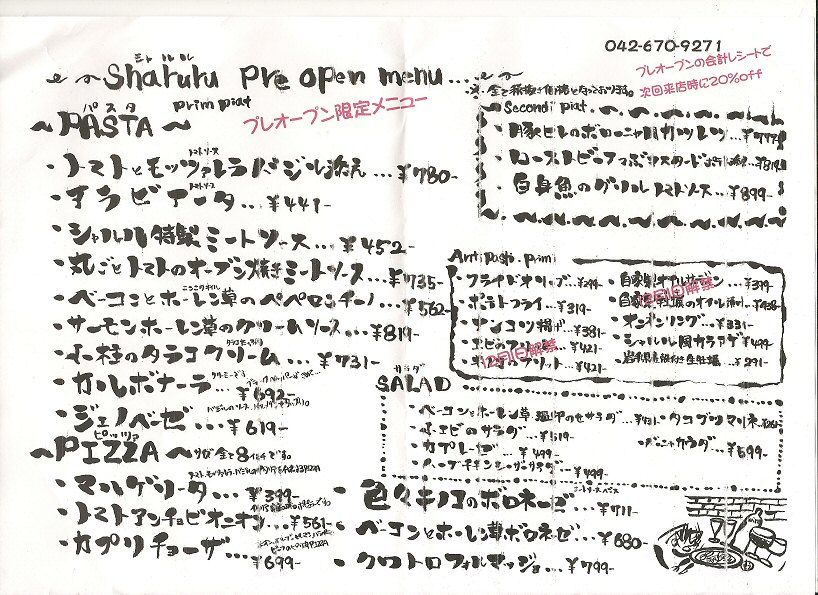 042-670-9271
シャルル
Sharuru Pre open menu....
プレオープンの会計レシートで
次回来店時に20%off
パスタ
~PASTA~
prim piat
プレオープン限定メニュー
トマトソース
・トマトとモッツァレラバジル添え...¥780-
トマトソース
・アラビアータ...¥441-
・シャルル特製ミートソース...¥452-
・丸ごとトマトのオーブン焼きミートソース...¥735-
・ベーコンとホーレン草のペペロンチーノ...¥562-
・サーモンホーレン草のクリームソース...¥819-
・小柱のタラコクリーム...¥731-
・カルボナーラ...¥692-
・ジェノベーゼ...¥619-
ピッツァ
~PIZZA~サイズ全て8インチです。
・マルゲリータ...¥399-
・トマトアンチョビオニオン...¥561-
・カプリチョーザ...¥699-
・色々キノコのボロネーゴ...¥711-
・ベーコンとホーレン草ボロネーゼ...¥680-
・クワトロフォルマッジョ...¥799-
※全て税抜き価格となっております。
Secondi piat
・豚ヒレのボローニャ風カツレツ...¥777-
・ローストビーフつぶマスタード
・白身魚のグリル トマトソース...¥899-
Antipasto.primi
・フライドオニオン
・ポテトフライ...¥319-
・ナンコツ揚げ...¥381-
¥421-
¥421-
12月1日解禁
¥319-
12月1日解禁
・オニオンリング...¥331-
・シャルル風カラアゲ ¥499-
¥291-
サラダ
SALAD
・ベーコンとホーレン草温卵のせサラダ
・小エビのサラダ...¥519-
・カプレーゼ...¥499-
・ハーブチキンシーザーサラダ...¥499-
・タコブツマリネ
・バーニャカウダ...¥599-